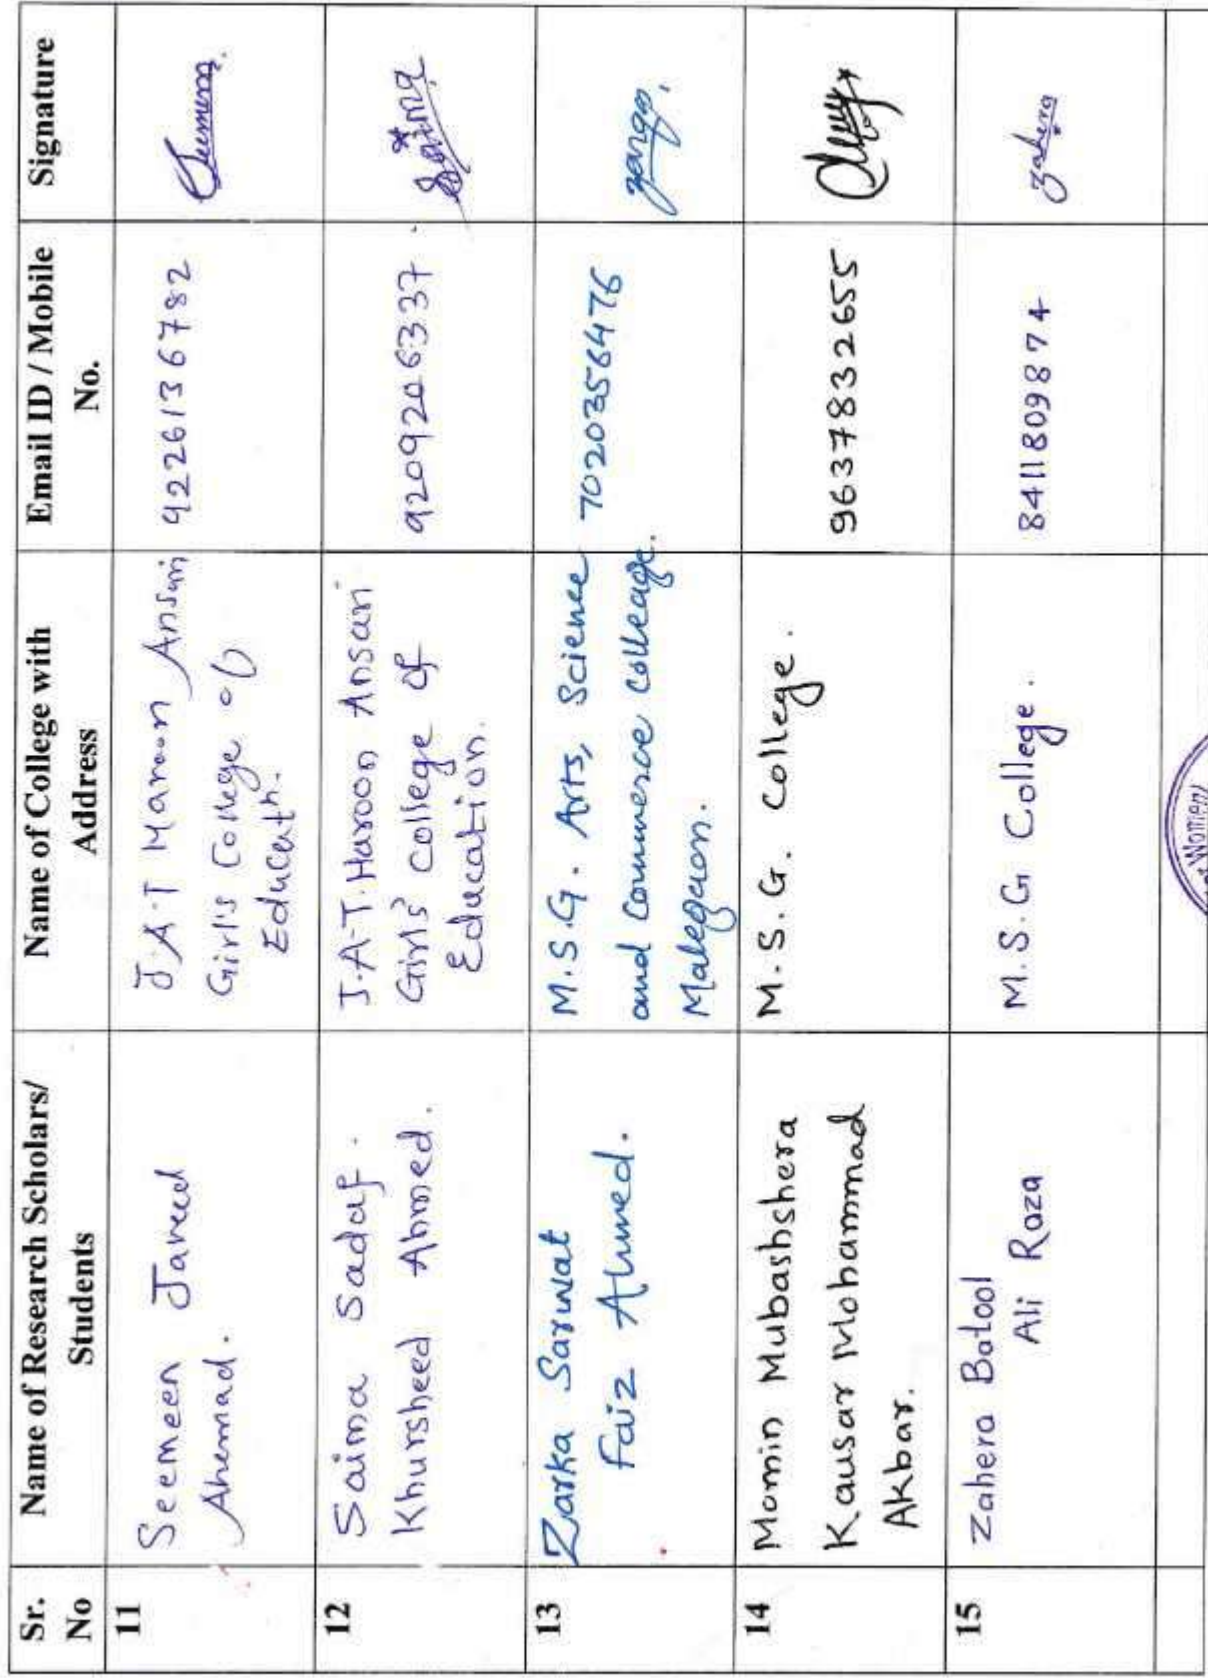 Sr. No
Name of Research Scholars/ Students
Name of College with Address
Email ID / Mobile No.
Signature
11
Seemeen Javeed
Ahemad.
J.A.T Haroon Ansari
Girl's College of
Educatn.
9226136782
12
Saima Sadaf.
Khursheed Ahmed.
J.A.T. Haroon Ansari
Girls' College of
Education.
9209206337.
Saima
13
Zarka Sarwat
Faiz Ahmed.
M.S.G. Arts, Science
and Commerce colleage.
Malegaon.
7020356476
14
Momin Mubashshera
Kausar Mohammad
Akbar.
M.S.G. College.
9637832655
15
Zahera Batool
Ali Raza
M.S.G College.
8411809874
zahera
Women